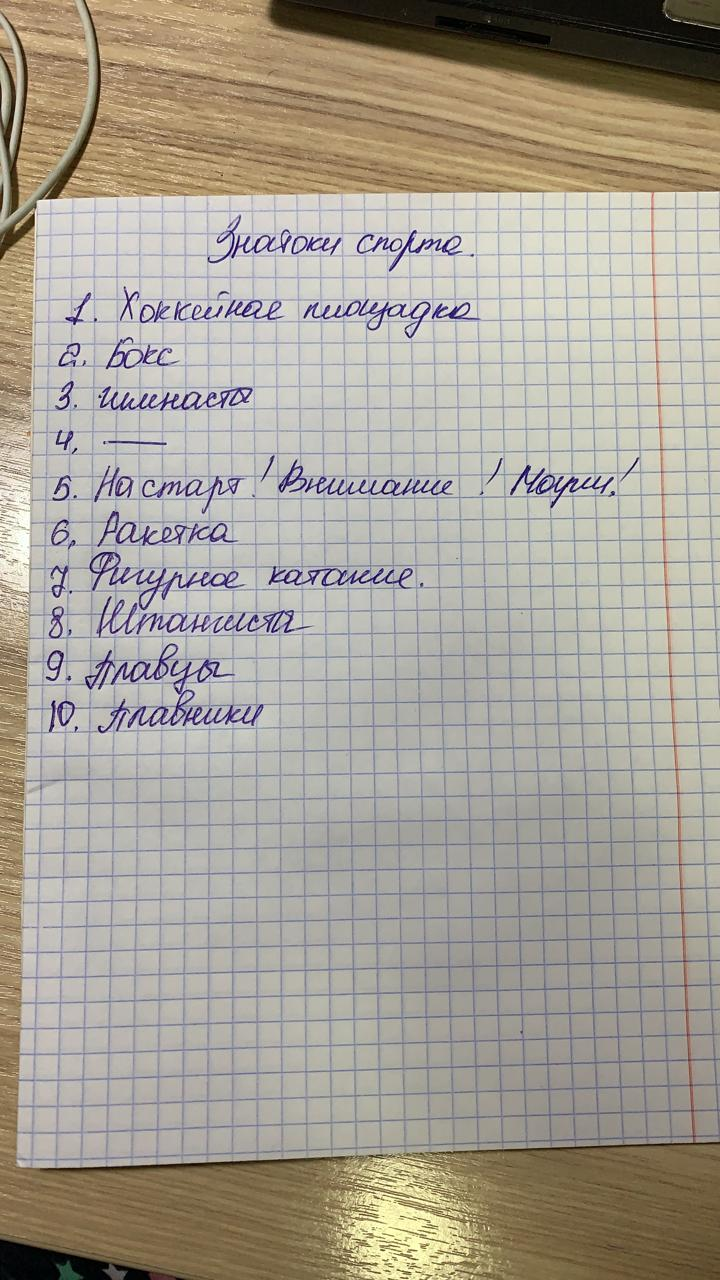 Знатоки спорта.
1. Хоккейная площадка
2. Бокс
3. гимнасты
4. —
5. На старт! Внимание! Марш!
6. Ракетка
7. Фигурное катание.
8. Штангисты
9. Пловцы
10. Плавники